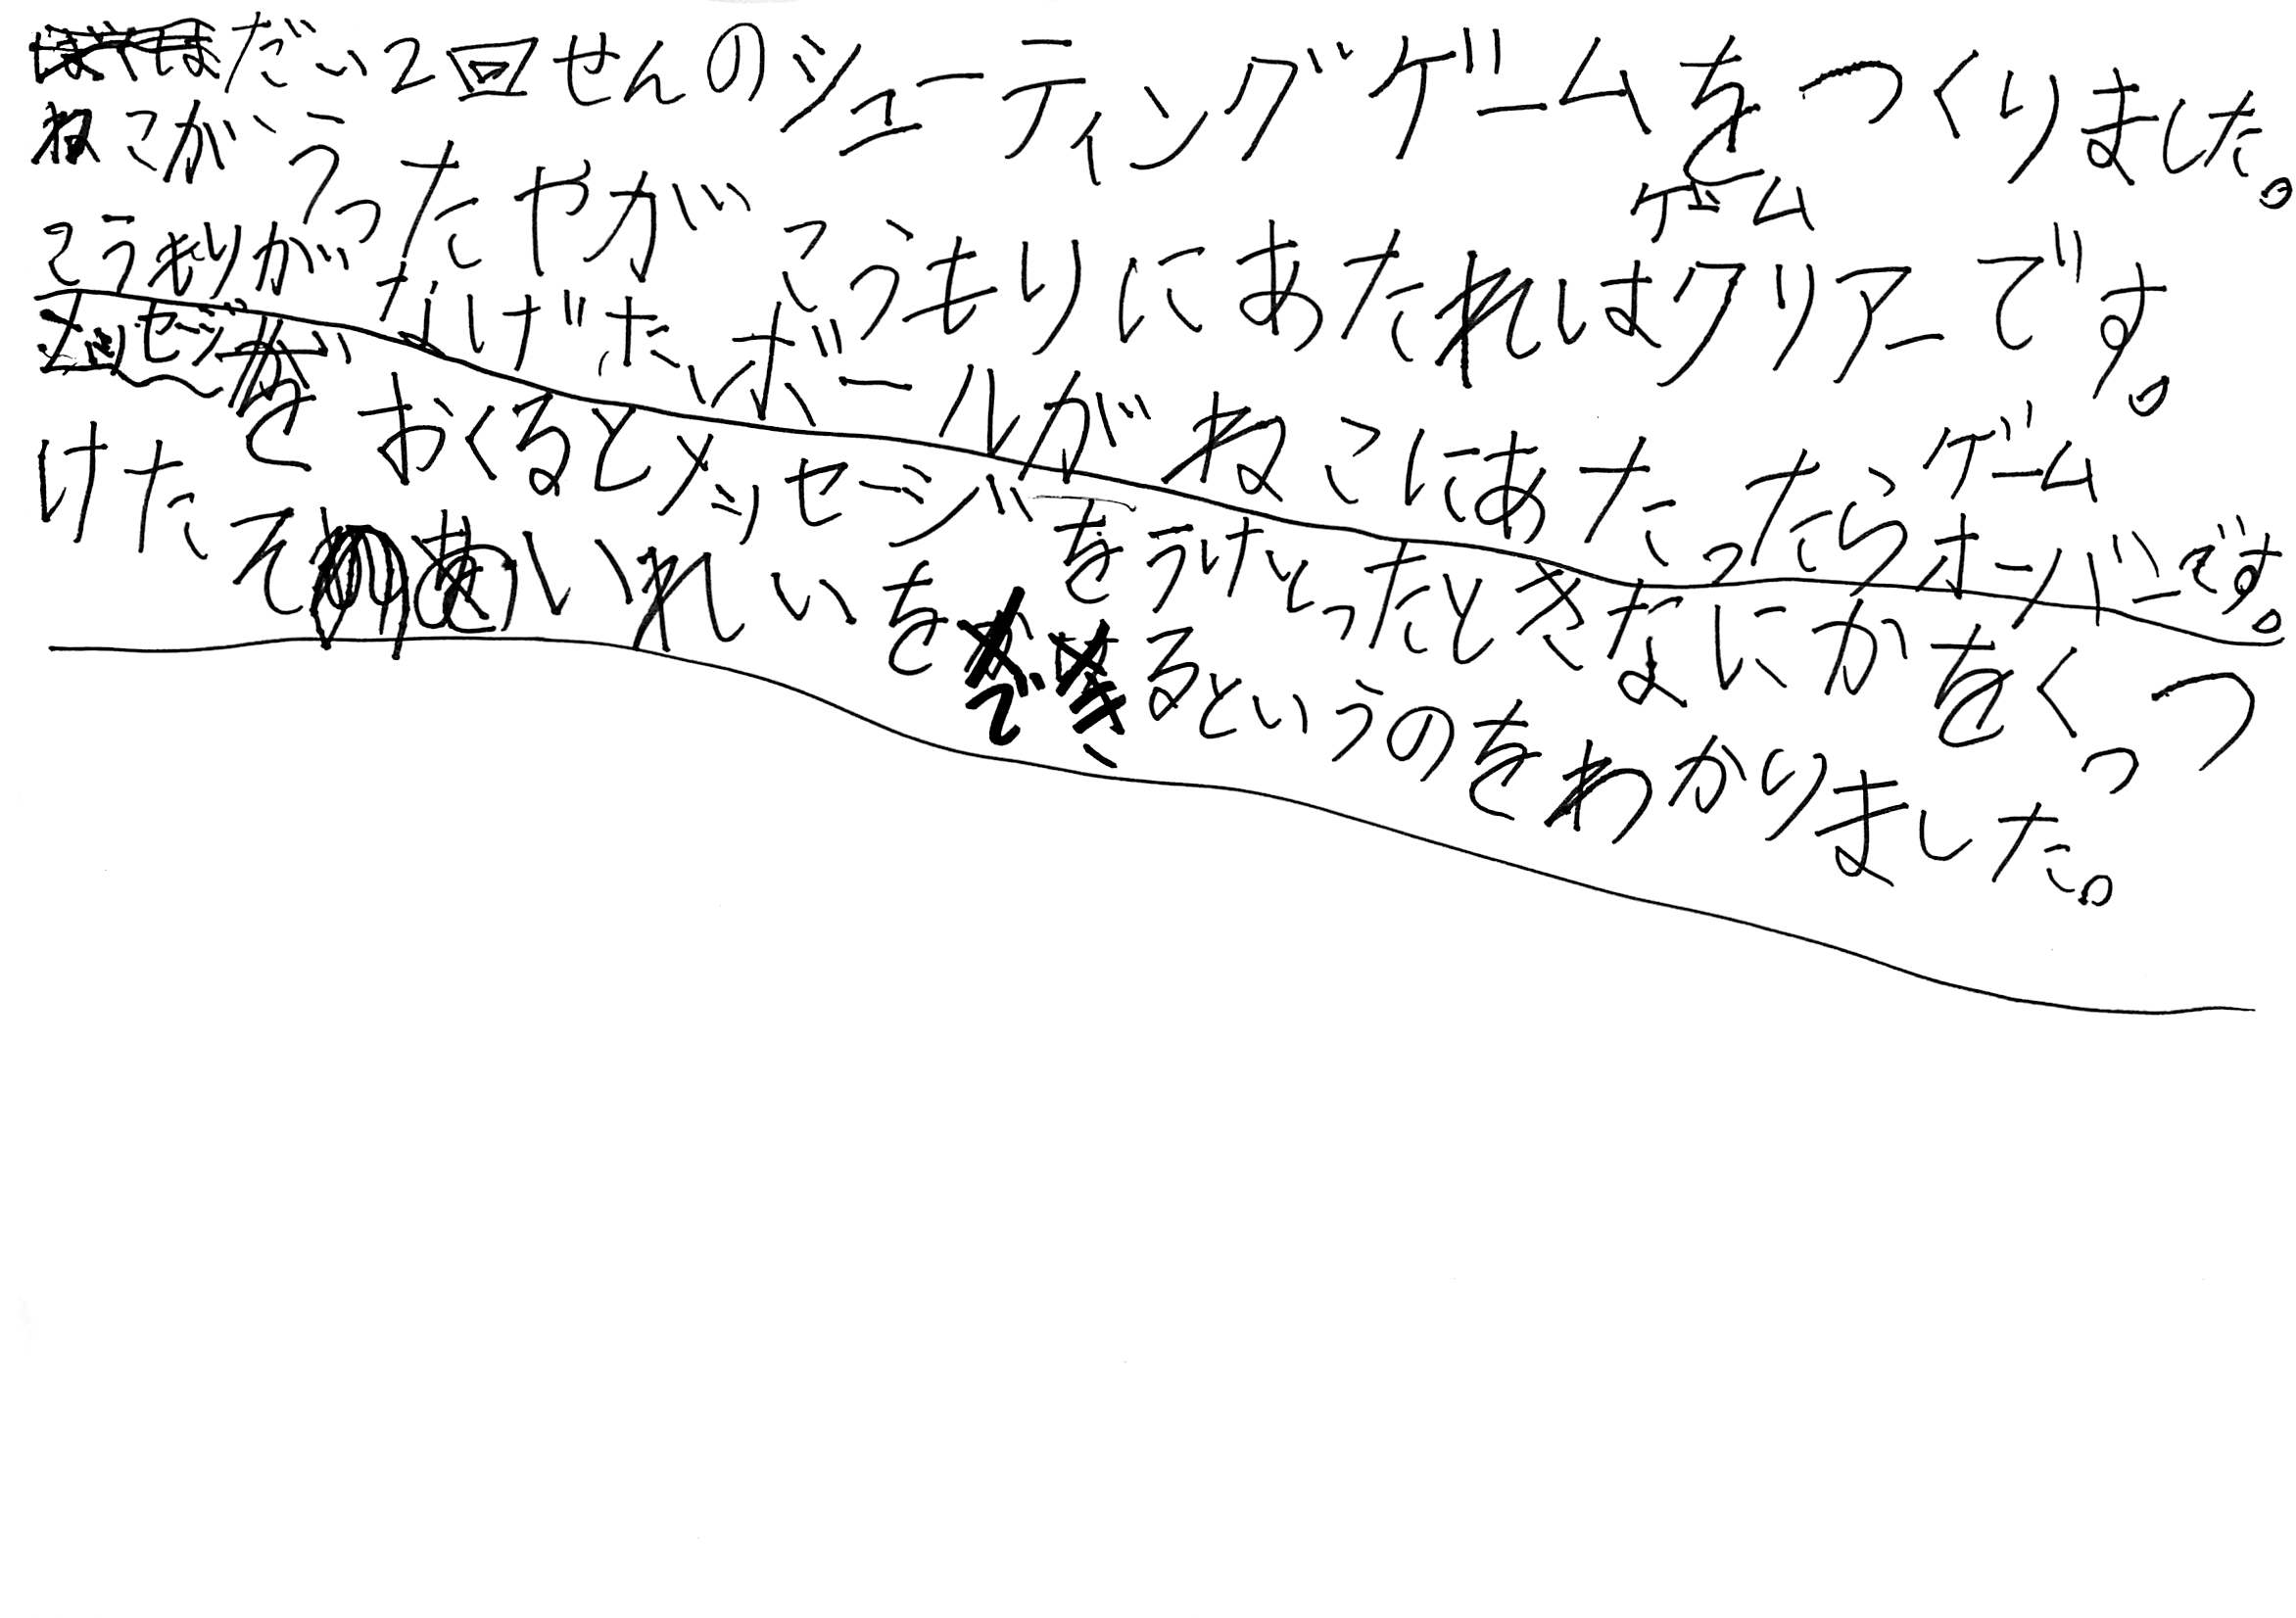 だい2回せんのシューティングゲームをつくりました。
ねこがうったやがこうもりにあたればゲームクリアーです。
こうもりがなげたボールがねこにあたったらゲームオーバーです。
メッセージをおくるとメッセージをうけとったときなにかをくっつ
けたそいれいをできるというのをわかりました。